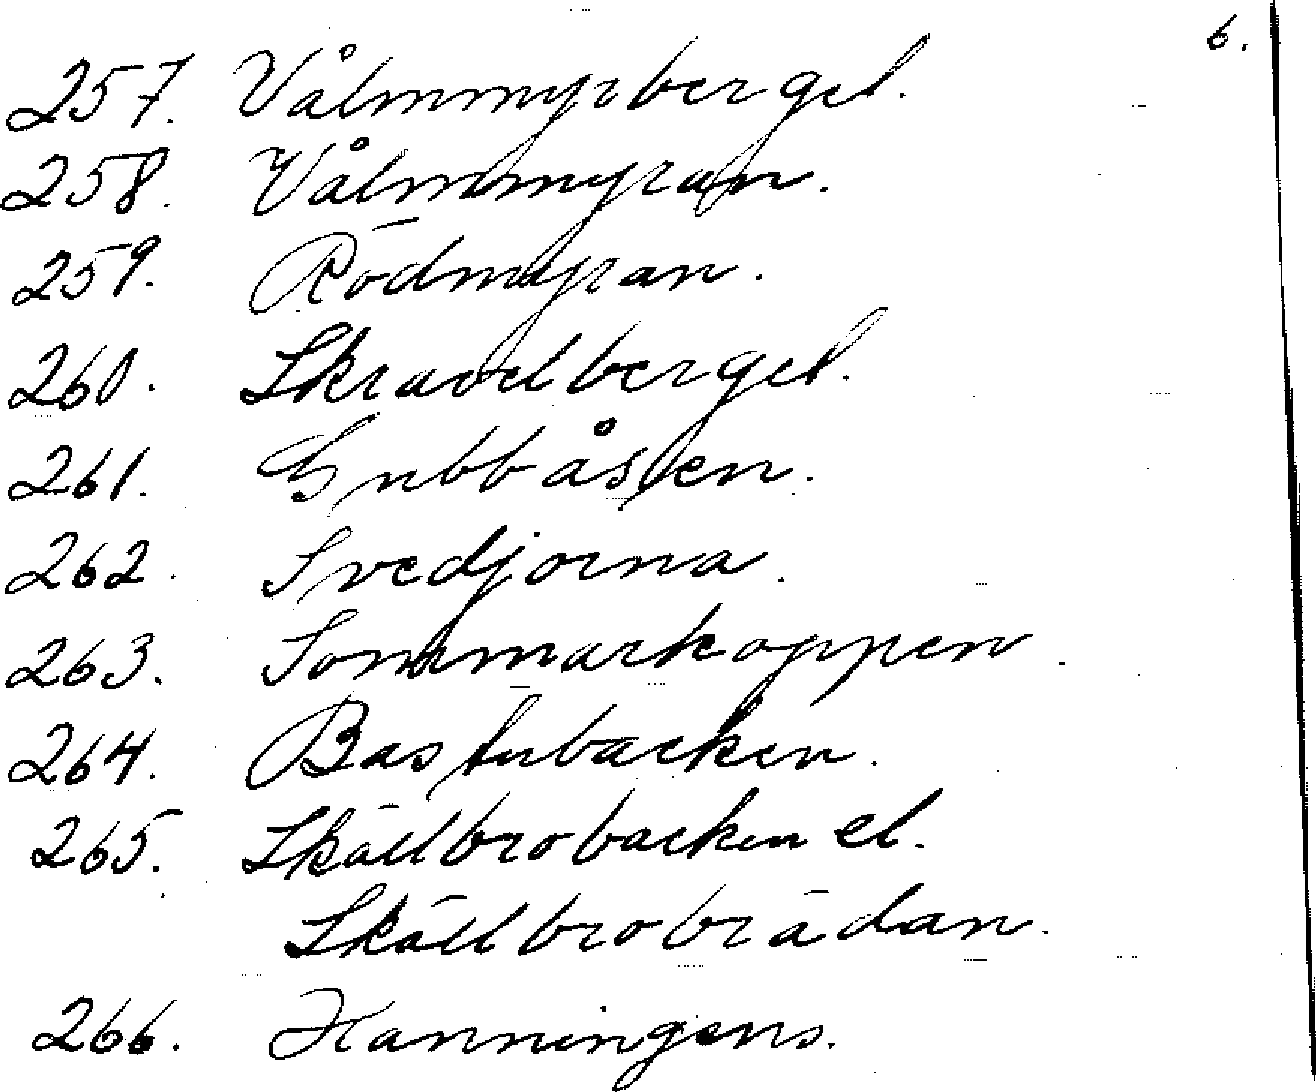 6.
257. Vålmmyrberget.
258. Vålmmyran.
259. Rödmyran.
260. Skravelberget.
261. Gubbåsen.
262. Svedjorna.
263. Sommarkoppen.
264. Bastubacken.
265. Skällbrobacken el.
Skällbrobrädan.
266. Hanningens.